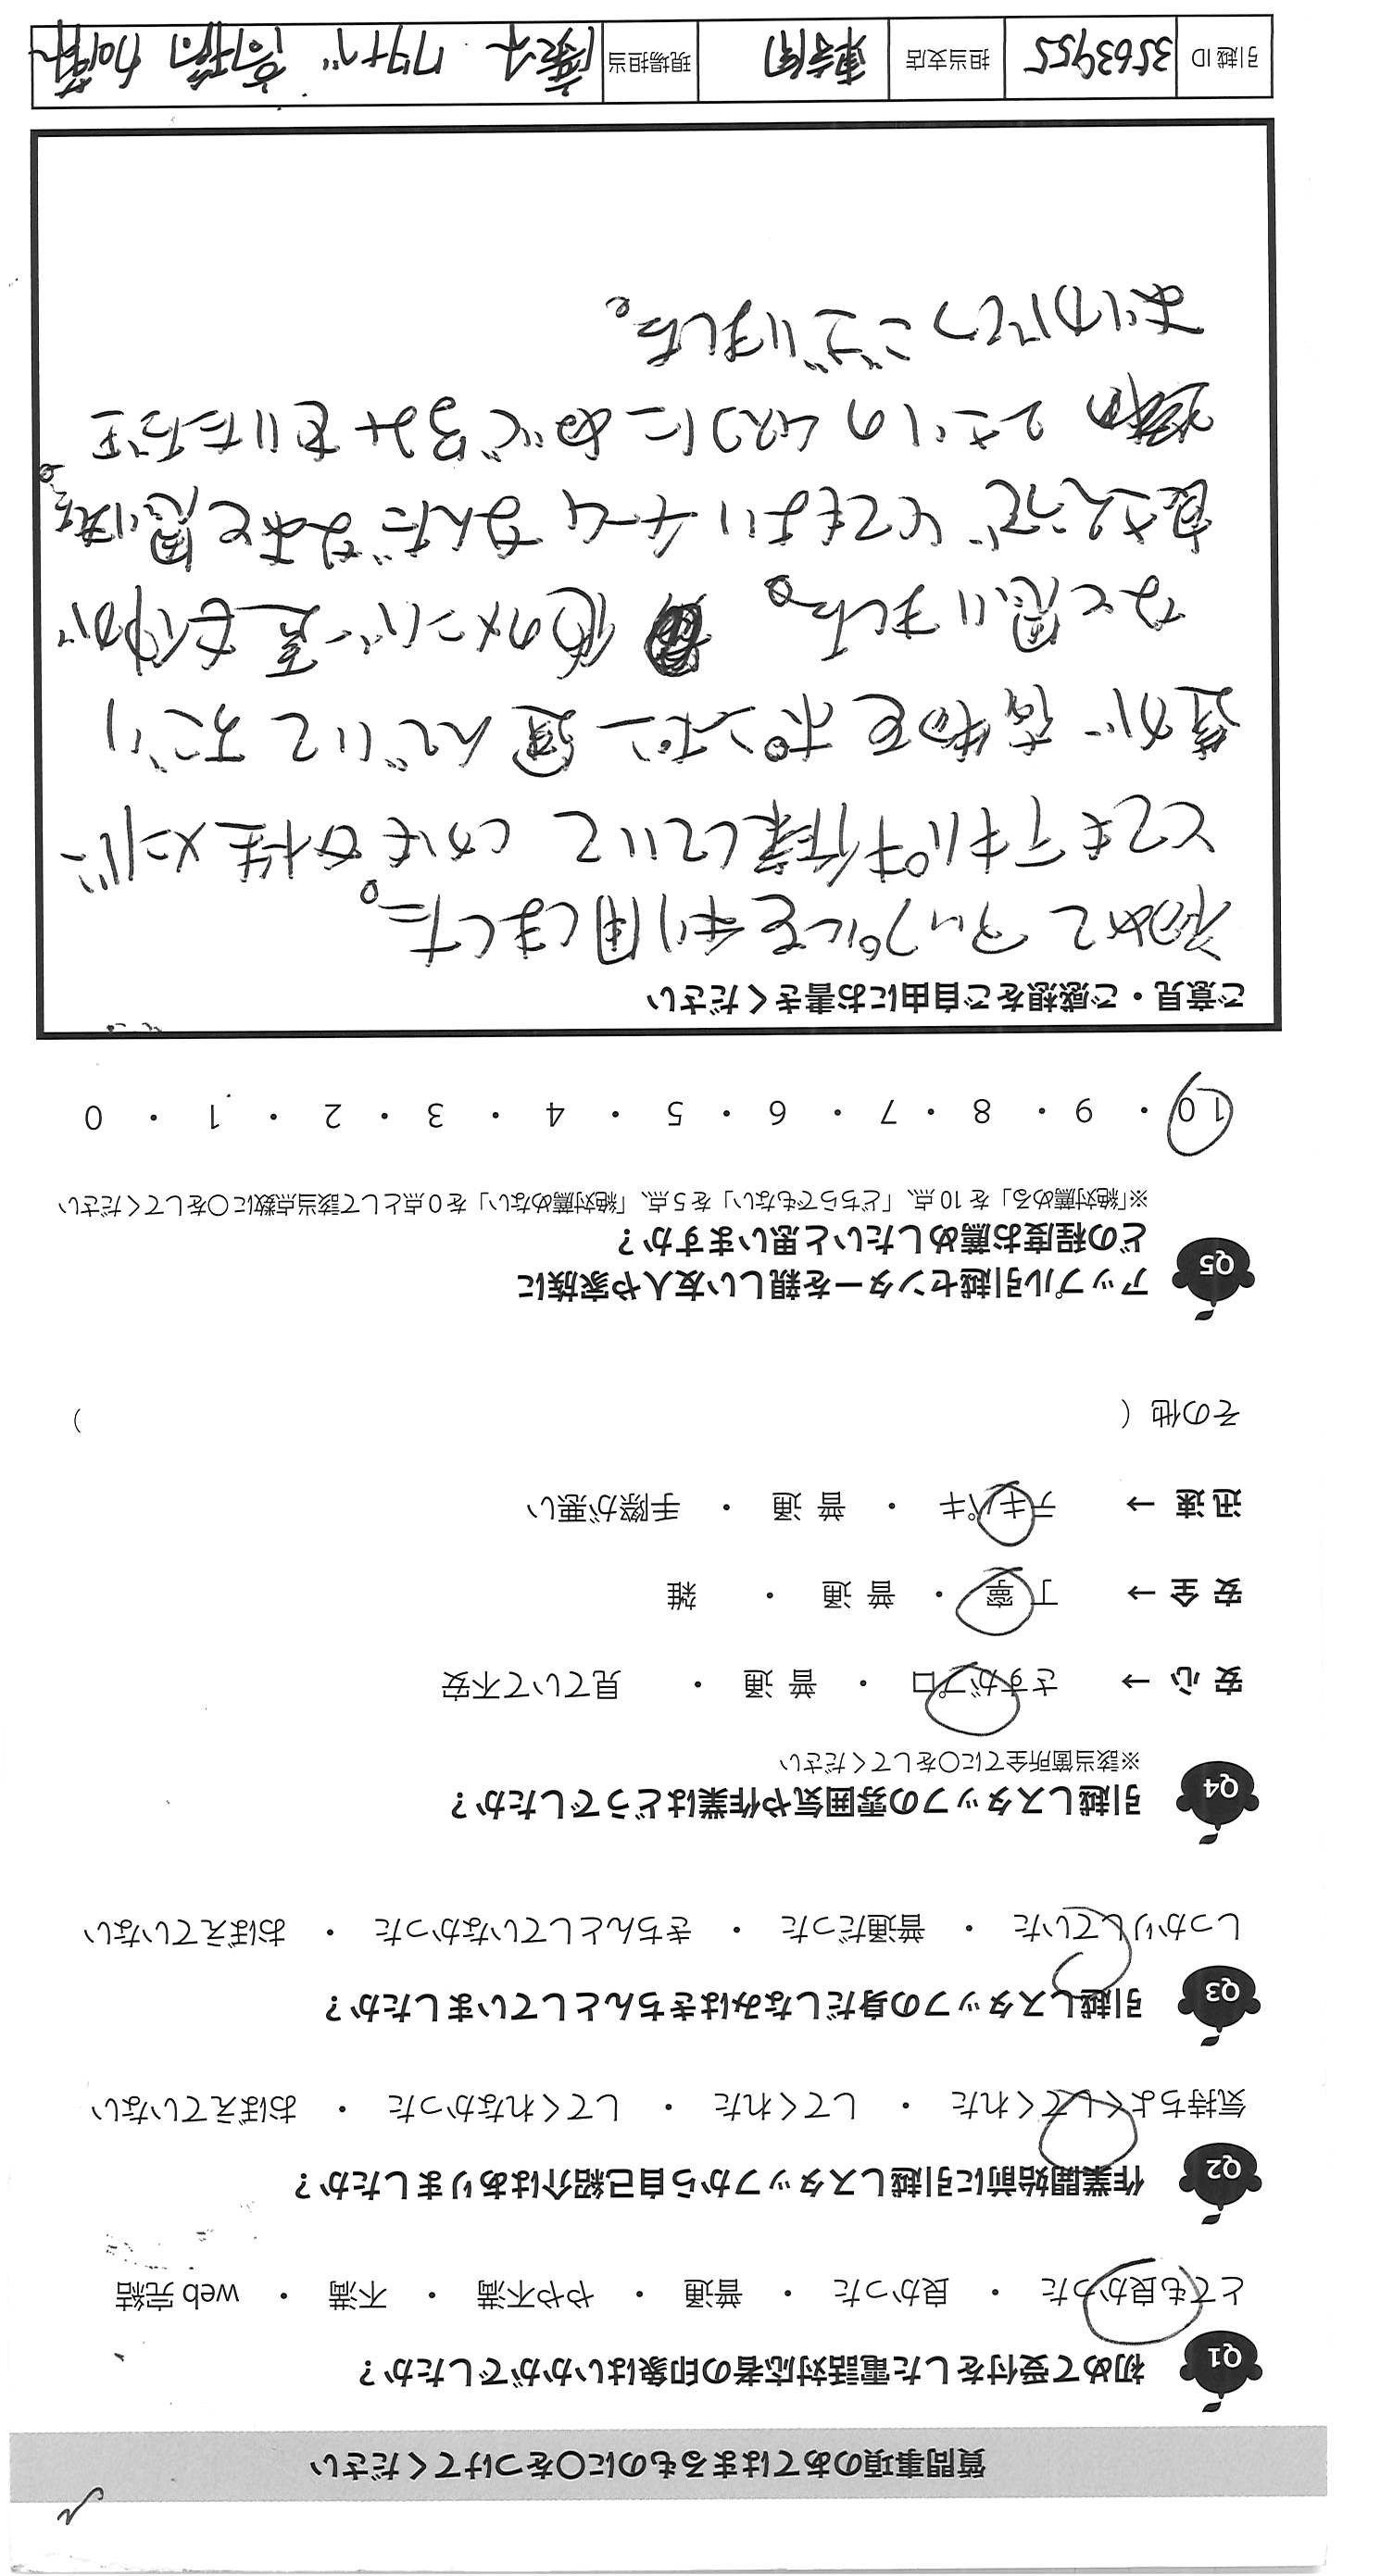 質問事項のあてはまるものに○をつけてください
Q1 初めて受付をした電話対応者の印象はいかがでしたか？
とても良かった ・ 良かった ・ 普通 ・ やや不満 ・ 不満 ・ web完結
Q2 作業開始前に引越しスタッフから自己紹介はありましたか？
気持ちよくしてくれた ・ してくれた ・ してくれなかった ・ おぼえていない
Q3 引越しスタッフの身だしなみはきちんとしていましたか？
しっかりしていた ・ 普通だった ・ きちんとしていなかった ・ おぼえていない
Q4 引越しスタッフの雰囲気や作業はどうでしたか？
※該当箇所全てに○をしてください
安心 → さすがプロ ・ 普通 ・ 見ていて不安
安全 → 丁寧 ・ 普通 ・ 雑
迅速 → テキパキ ・ 普通 ・ 手際が悪い
その他（ ）
Q5 アップル引越センターを親しい友人や家族に
どの程度お薦めしたいと思いますか？
※「絶対薦める」を10点、「どちらでもない」を5点、「絶対薦めない」を0点として該当点数に○をしてください
10 ・ 9 ・ 8 ・ 7 ・ 6 ・ 5 ・ 4 ・ 3 ・ 2 ・ 1 ・ 0
ご意見・ご感想をご自由にお書きください
初めてアップルを利用しました。
とてもテキパキ作業していて しかも女性メンバー
達が荷物をポンポン運んでいてすごい
なと思いました。 他のメンバー達も仲が
良さそうで とてもよいチームなんだなあと思いました。
2さいの にめで をいただき
ありがとうございました。
引越ID 3563955 担当支店 現場担当 高橋 加藤